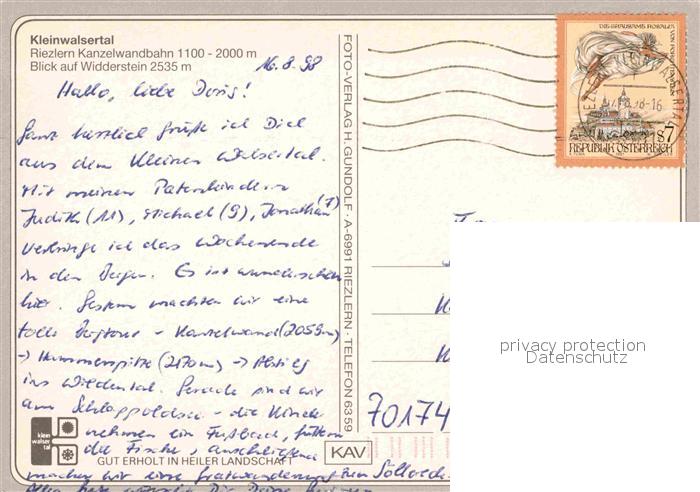 Kleinwalsertal
Riezlern Kanzelwandbahn 1100 - 2000 m
Blick auf Widderstein 2535 m
16.8.98
Hallo, liebe Doris!
Ganz herzlich grüße ich Dich
aus dem Kleinen Walsertal.
Mit meinen Patenkindern
Judith (11), Michael (9), Jonathan (7)
verbringe ich das Wochenende
in den Bergen. Es ist wunderschön
hier. Gestern machten wir eine
tolle Bergtour - Kanzelwand (2059m)
-> Hammerspitze (2170m) -> Abstieg
ins Wildental. Gerade sind wir
am Schlappoldsee - die Kinder
nehmen ein Fußbad, füttern
die Fische, anschließend
machen wir eine Gratwanderung zum Söllereck.
klein
walser
tal
GUT ERHOLT IN HEILER LANDSCHAFT
KAV
FOTO-VERLAG H. GUNDOLF · A-6991 RIEZLERN · TELEFON 6358
DIE GRAUSAME ROSALIA
VON FORCHTENSTEIN
S7
REPUBLIK ÖSTERREICH
70174
privacy protection
Datenschutz